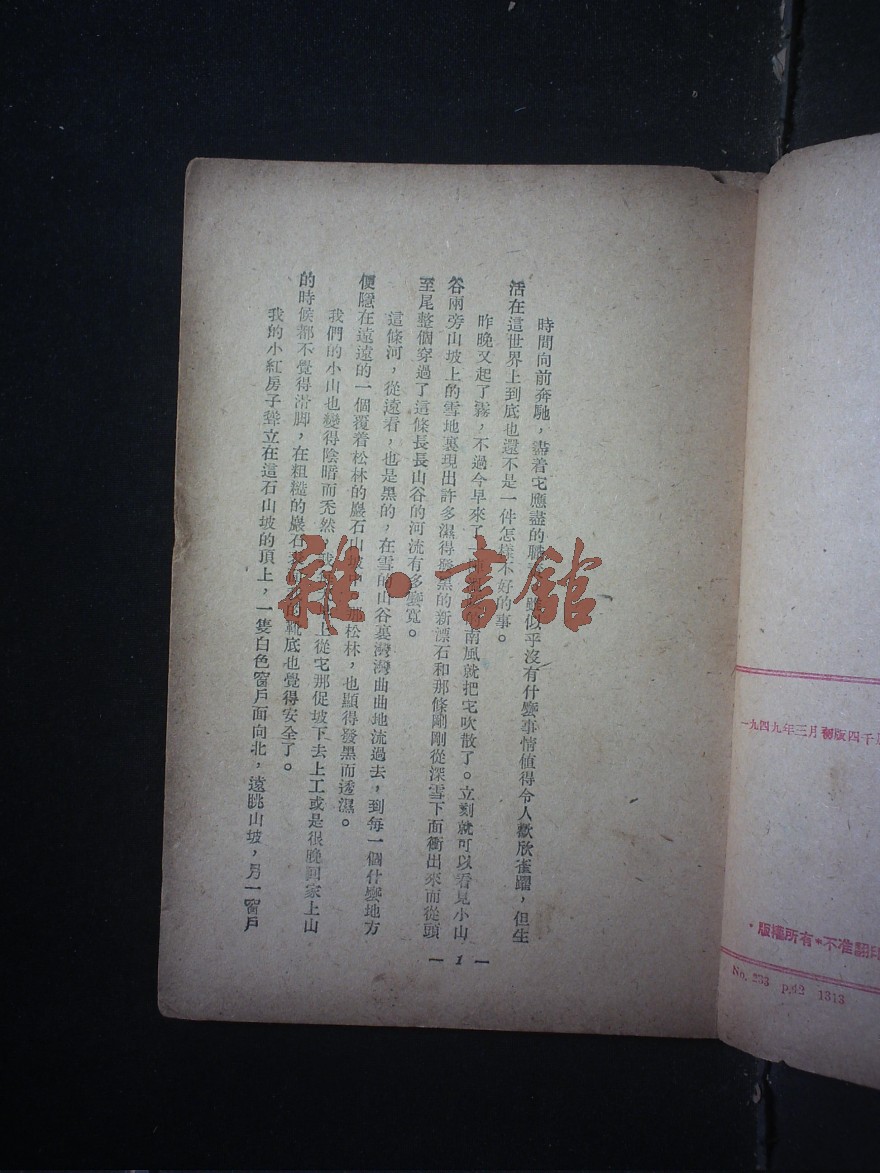 時間向前奔馳，盡着它應盡的職 雖似乎沒有什麼事情值得令人歡欣雀躍，但生
活在這世界上到底也還不是一件怎樣不好的事。
昨晚又起了霧，不過今早來了一 南風就把它吹散了。立刻就可以看見小山
谷兩旁山坡上的雪地裏現出許多濕得發黑的新漂石和那條剛剛從深雪下面衝出來而從頭
至尾整個穿過了這條長長山谷的河流有多麼寬。
這條河，從遠看，也是黑的，在雪的山谷裏灣灣曲曲地流過去，到每一個什麼地方
便隱在遠遠的一個覆着松林的巖石山坡 松林，也顯得發黑而透濕。
我們的小山也變得陰暗而禿然 上從它那促坡下去上工或是很晚回家上山
的時候都不覺得滑脚，在粗糙的巖石 靴底也覺得安全了。
我的小紅房子聳立在這石山坡的頂上，一隻白色窗戶面向北，遠眺山坡，另一窗戶
— 1 —
雜·書館
一九四九年三月初版四千
·版權所有*不准翻印
No. 233 p.42 1313